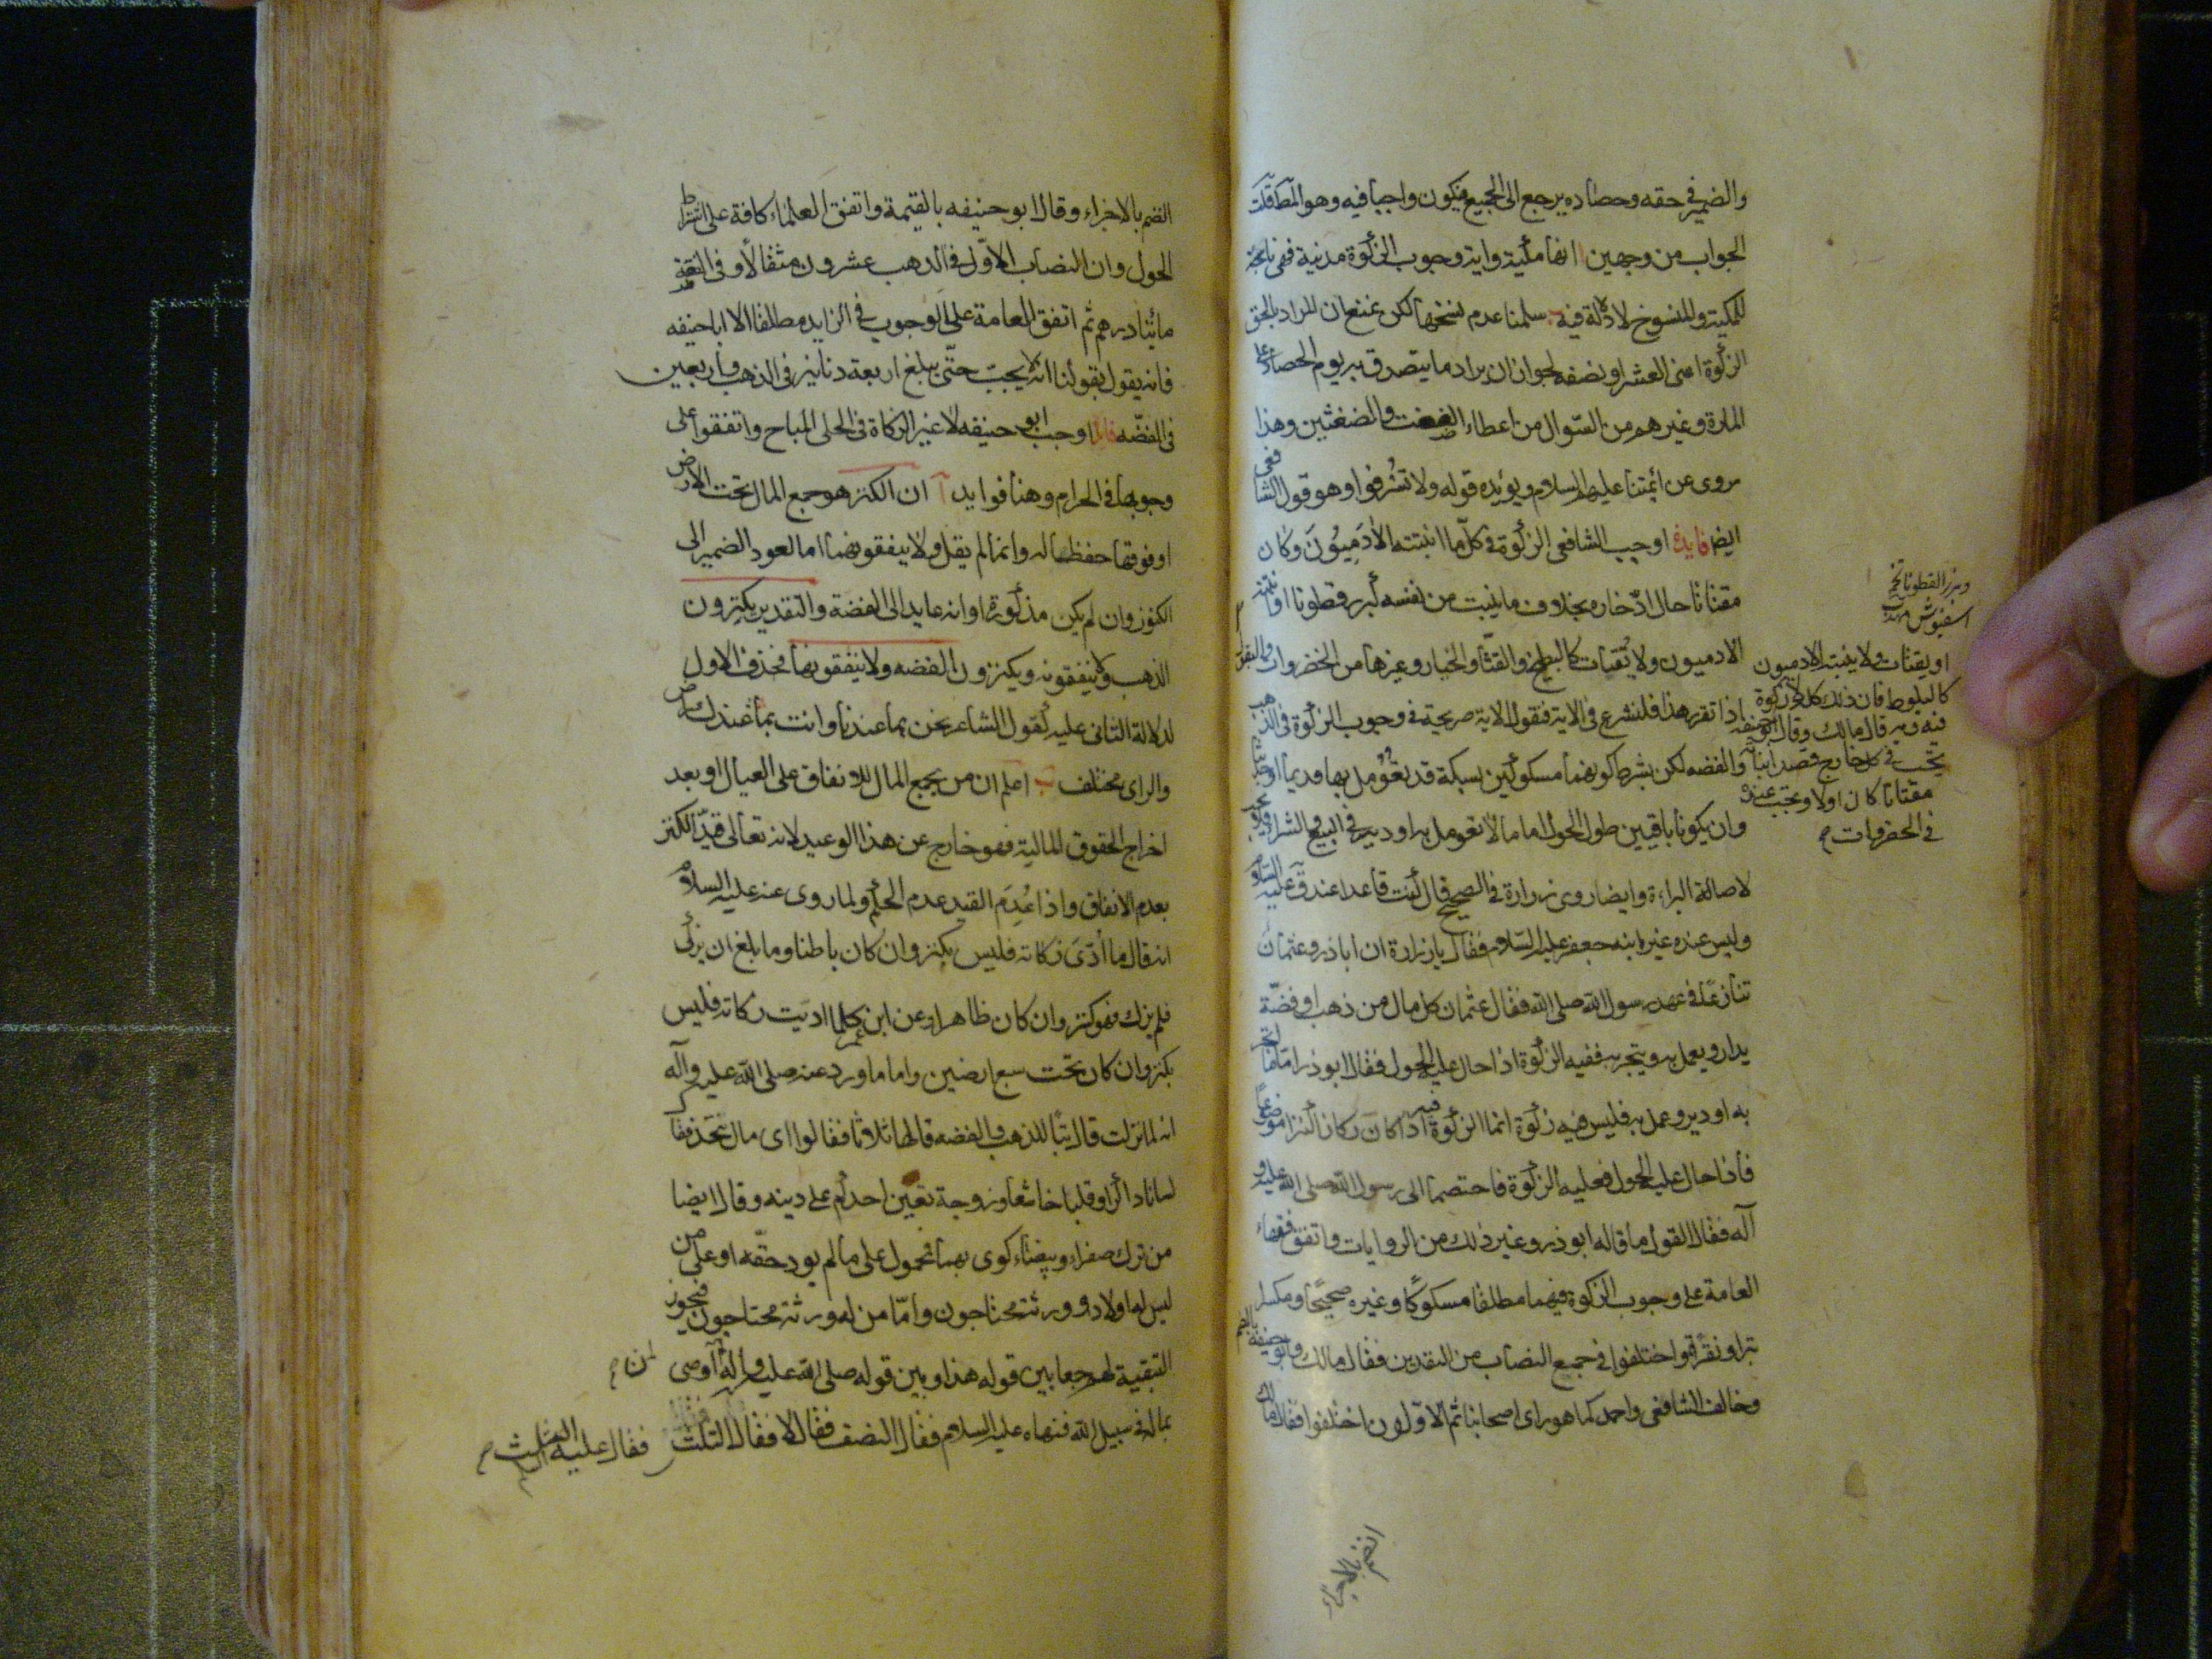 والضمير فى حقه وحصاده يرجع الى الجميع فيكون واجبا فيه وهو المط قلت
الجواب من وجهين ا انها مكية واية وجوب الزكوة مدنية فهى ناسخة
للمكية والمنسوخ لا دلالة فيه ب سلمنا عدم نسخها لكن نمنع ان المراد بالحق
الزكوة اعنى العشر او نصفه لجواز ان يراد ما يتصدق به يوم الحصاد على
المارة وغيرهم من السؤال من اعطاء الضغث والضغثين وهذا
مروى عن ائمتنا عليهم السلام ويؤيده قوله ولا تسرفوا وهو قول الشافعى
ايضا فايدة اوجب الشافعى الزكوة فى كل ما انبتته الادميون وكان
مقتاتا حال ادخاره بخلاف ما ينبت من نفسه كبزر قطونا او انبته
الادميون ولا يقتات كالبطيخ والقثا والخيار وغيرها من الخضروات والبقل
اذا تقرر هذا فلنشرع فى الاية فنقول الاية صريحة فى وجوب الزكوة فى الذهب
والفضه لكن بشرط كونهما مسكوكين بسكة قد تعومل بها قديما او حديثا
وان يكونا باقيين طول الحول اما ما لا تعومل به او دير فى البيع والشراء فلا يجب
لاصالة البراءة وايضا روى زرارة فى الصحيح قال كنت قاعدا عند ق عليه السلام
وليس عنده غير ابنه جعفر عليه السلام فقال يا زرارة ان اباذر وعثمان
تنازعا فى عهد رسول الله صلى الله فقال عثمان كل مال من ذهب او فضة
يدار ويعمل به ويتجر به ففيه الزكوة اذا حال عليه الحول فقال ابوذر اما ما اتجر
به او دير وعمل به فليس فيه زكوة انما الزكوة فيه اذا كان ركازا كنزا موضوعا
فاذا حال عليه الحول فعليه الزكوة فاختصما الى رسول الله صلى الله عليه و
آله فقال القول ما قاله ابوذر وغير ذلك من الروايات واتفق فقهاء
العامة على وجوب الزكوة فيهما مطلقا مسكوكا وغيره صحيحا ومكسرا
تبرا ونقرة واختلفوا فى جميع النصاب من النقدين فقال مالك وابو حنيفة بالضم
وخالف الشافعى واحمد كما هو راى اصحابنا ثم الاولون اختلفوا فقال مالك
وبزر القطونا تخم
اسفيوش
او يقتات ولا ينبته الادميون
كالبلوط فان ذلك كله لا زكوة
فيه وبه قال مالك وقال ابو حنيفه
يجب فى كل خارج قصد انباته
مقتاتا كان اولا ويجب عنده
فى الخضروات
الضم بالاجزاء
الضم بالاجزاء وقال ابو حنيفه بالقيمة واتفق العلماء كافة على اشتراط
الحول وان النصاب الاول فى الذهب عشرون مثقالا وفى الفضة
مائتا درهم ثم اتفق العامة على الوجوب فى الزايد مطلقا الا ابا حنيفه
فانه يقول بقولنا انه لا يجب حتى يبلغ اربعة دنانير فى الذهب واربعين
فى الفضه اوجب ابو حنيفه لا غير الزكاة فى الحلى المباح واتفقوا على
وجوبها فى الحرام وهنا فوايد آ ان الكنز هو جمع المال تحت الارض
او فوقها حفظا له وانما لم يقل ولا ينفقونهما اما لعود الضمير الى
الكنوز وان لم يكن مذكورة او انه عايد الى الفضة والتقدير يكنزون
الذهب ولا ينفقونه ويكنزون الفضه ولا ينفقونها فحذف الاول
لدلالة الثانى عليه كقول الشاعر نحن بما عندنا وانت بما عندك راض
والراى مختلف ب اعلم ان من يجمع المال للانفاق على العيال او بعد
اخراج الحقوق المالية فهو خارج عن هذا الوعيد لانه تعالى قيد الكنز
بعدم الانفاق واذا عدم القيد عدم الحكم ولما روى عنه عليه السلام
انه قال ما ادى زكاته فليس بكنز وان كان باطنا وما بلغ ان يزكى
فلم يزك فهو كنز وان كان ظاهرا وعن ابن عمر كلما اديت زكاته فليس
بكنز وان كان تحت سبع ارضين واما ما ورد عنه صلى الله عليه وآله
انه لما نزلت قال تبا للذهب والفضه قالها ثلاثا فقالوا اى مال نتخذ فقا
لسانا ذاكرا وقلبا خاشعا وزوجة تعين احدكم على دينه وقال ايضا
من ترك صفراء وبيضاء كوى بهما فمحمول على ما لم يود حقه او على من
ليس له اولاد وورثة محتاجون واما من له ورثة محتاجون فيجوز
التبقية لهم جمعا بين قوله هذا وبين قوله صلى الله عليه وآله لمن اوصى
بماله فى سبيل الله فنهاه عليه السلام فقال النصف فقال لا فقال الثلث فقال عليه السلم الثلث